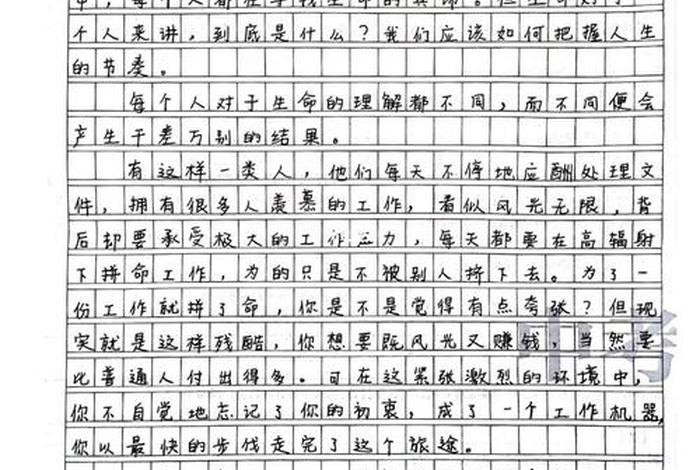 中，每个人都在寻找生命的真谛。但生命对于
个人来讲，到底是什么？我们应该如何把握人生
的节奏。
每个人对于生命的理解都不同，而不同便会
产生千差万别的结果。
有这样一类人，他们每天不停地应酬处理文
件，拥有很多人羡慕的工作，看似风光无限，背
后却要承受极大的工作压力，每天都要在高辐射
下拼命工作，为的只是不被别人挤下去。为了一
份工作就拼了命，你是不是觉得有点夸张？但现
实就是这样残酷，你想要既风光又赚钱，当然要
比普通人付出得多。可在这紧张激烈的环境中，
你不自觉地忘记了你的初衷，成了一个工作机器，
你以最快的步伐走完了这个旅途。
中考